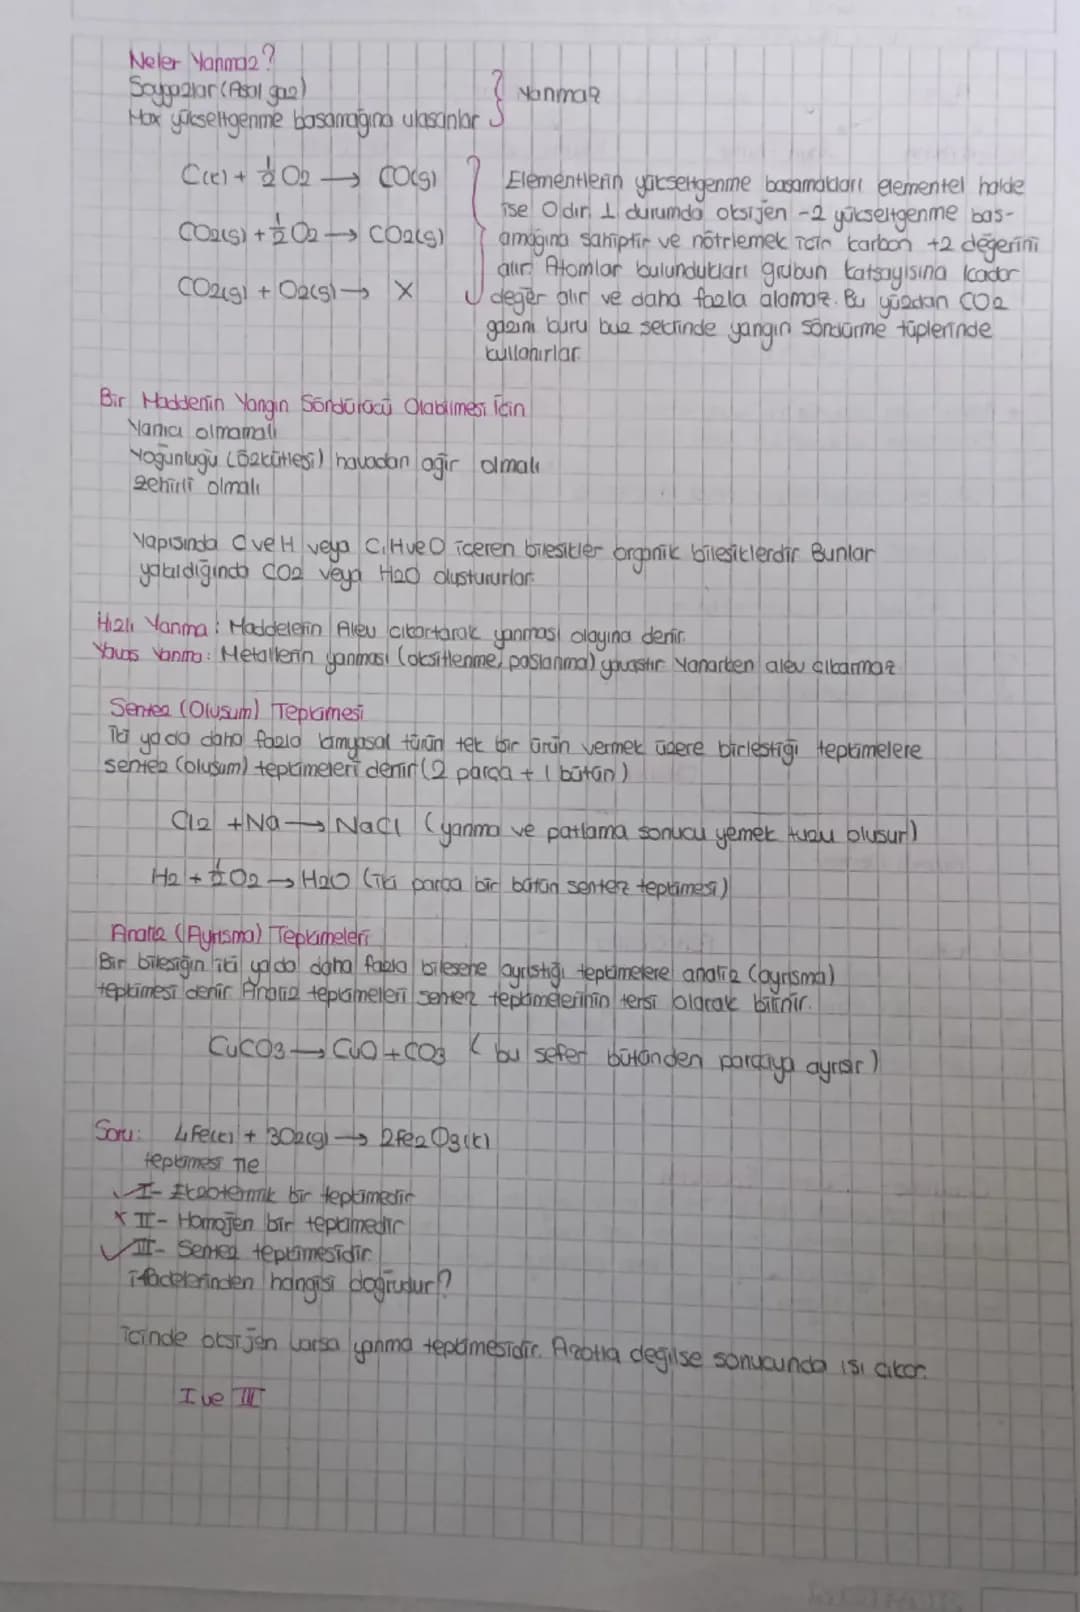 Neler Yanmaz?
Soygazlar (Asal gaz)
Max yükseltgenme basamağına ulaşanlar } Yanmaz
C(k) + 1/2 O2 → CO(g)
CO2(g) + 1/2 O2 → CO2(g)
CO2(g) + O2(g) → X
Elementlerin yükseltgenme basamakları elementel halde
ise 0 dır. 1. durumda oksijen -2 yükseltgenme bas-
amağına sahiptir ve nötrlemek için karbon +2 değerini
alır. Atomlar bulundukları grubun katsayısına kadar
değer alır ve daha fazla alamaz. Bu yüzdan CO2
gazını kuru buz şeklinde yangın söndürme tüplerinde
kullanırlar.
Bir Maddenin Yangın Söndürücü Olabilmesi İçin
Yanıcı olmamalı
Yoğunluğu (özkütlesi) havadan ağır olmalı
Zehirli olmalı
Yapısında C ve H veya C, H ve O içeren bileşikler organik bileşiklerdir. Bunlar
yakıldığında CO2 veya H2O oluştururlar.
Hızlı Yanma: Maddelerin Alev çıkartarak yanması olayına denir.
Yavaş Yanma: Metallerin yanması (oksitlenme, paslanma) yavaştır. Yanarken alev çıkarmaz
Sentez (Oluşum) Tepkimesi
İki ya da daha fazla kimyasal türün tek bir ürün vermek üzere birleştiği tepkimelere
sentez (oluşum) tepkimeleri denir (2 parça + 1 bütün)
Cl2 + Na → NaCl (yanma ve patlama sonucu yemek tuzu oluşur)
H2 + 1/2 O2 → H2O (iki parça bir bütün sentez tepkimesi)
Analiz (Ayrışma) Tepkimeleri
Bir bileşiğin iki ya da daha fazla bileşene ayrıştığı tepkimelere analiz (ayrışma)
tepkimesi denir. Analiz tepkimeleri sentez tepkimelerinin tersi olarak bilinir.
CuCO3 → CuO + CO3 (bu sefer bütünden parçaya ayrışır)
Soru: 4Fe(k) + 3O2(g) → 2Fe2O3(k)
tepkimesi ne
✓ I- Ekzotermik bir tepkimedir
x II- Homojen bir tepkimedir
✓ III- Sentez tepkimesidir.
ifadelerinden hangisi doğrudur?
içinde oksijen varsa yanma tepkimesidir. Azotla değilse sonucunda ısı çıkar.
I ve III